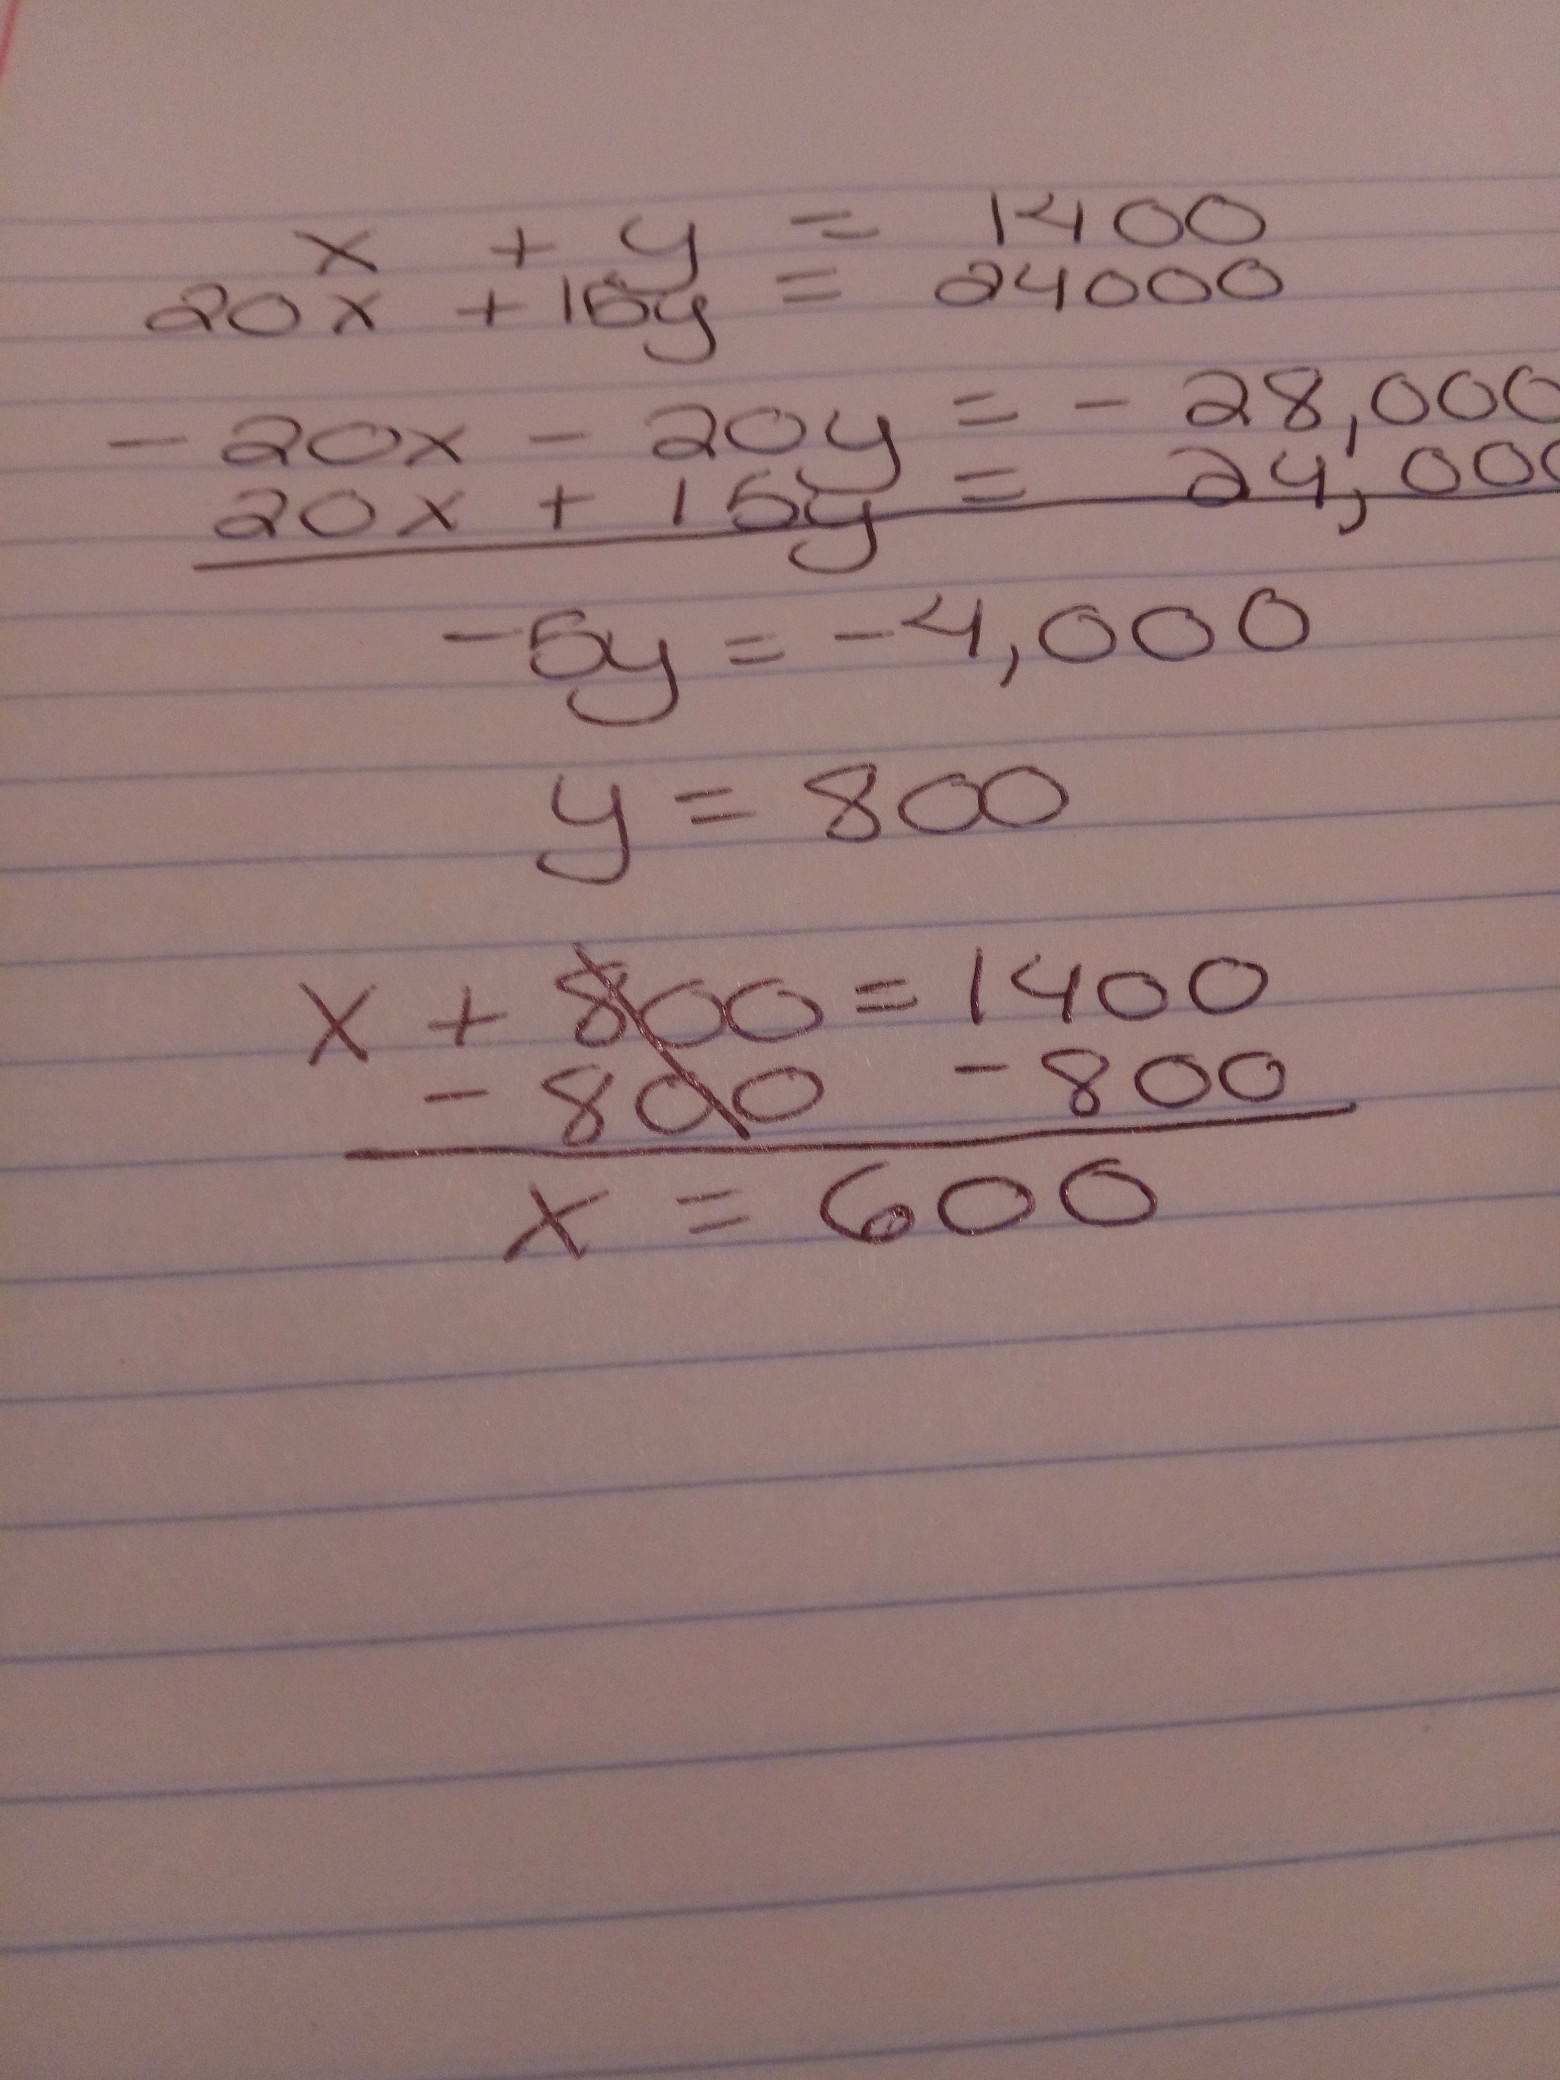 x + y = 1400
20x + 15y = 24000
- 20x - 20y = - 28,000
20x + 15y = 24,000
-5y = -4,000
y = 800
x + 800 = 1400
- 800 - 800
x = 600